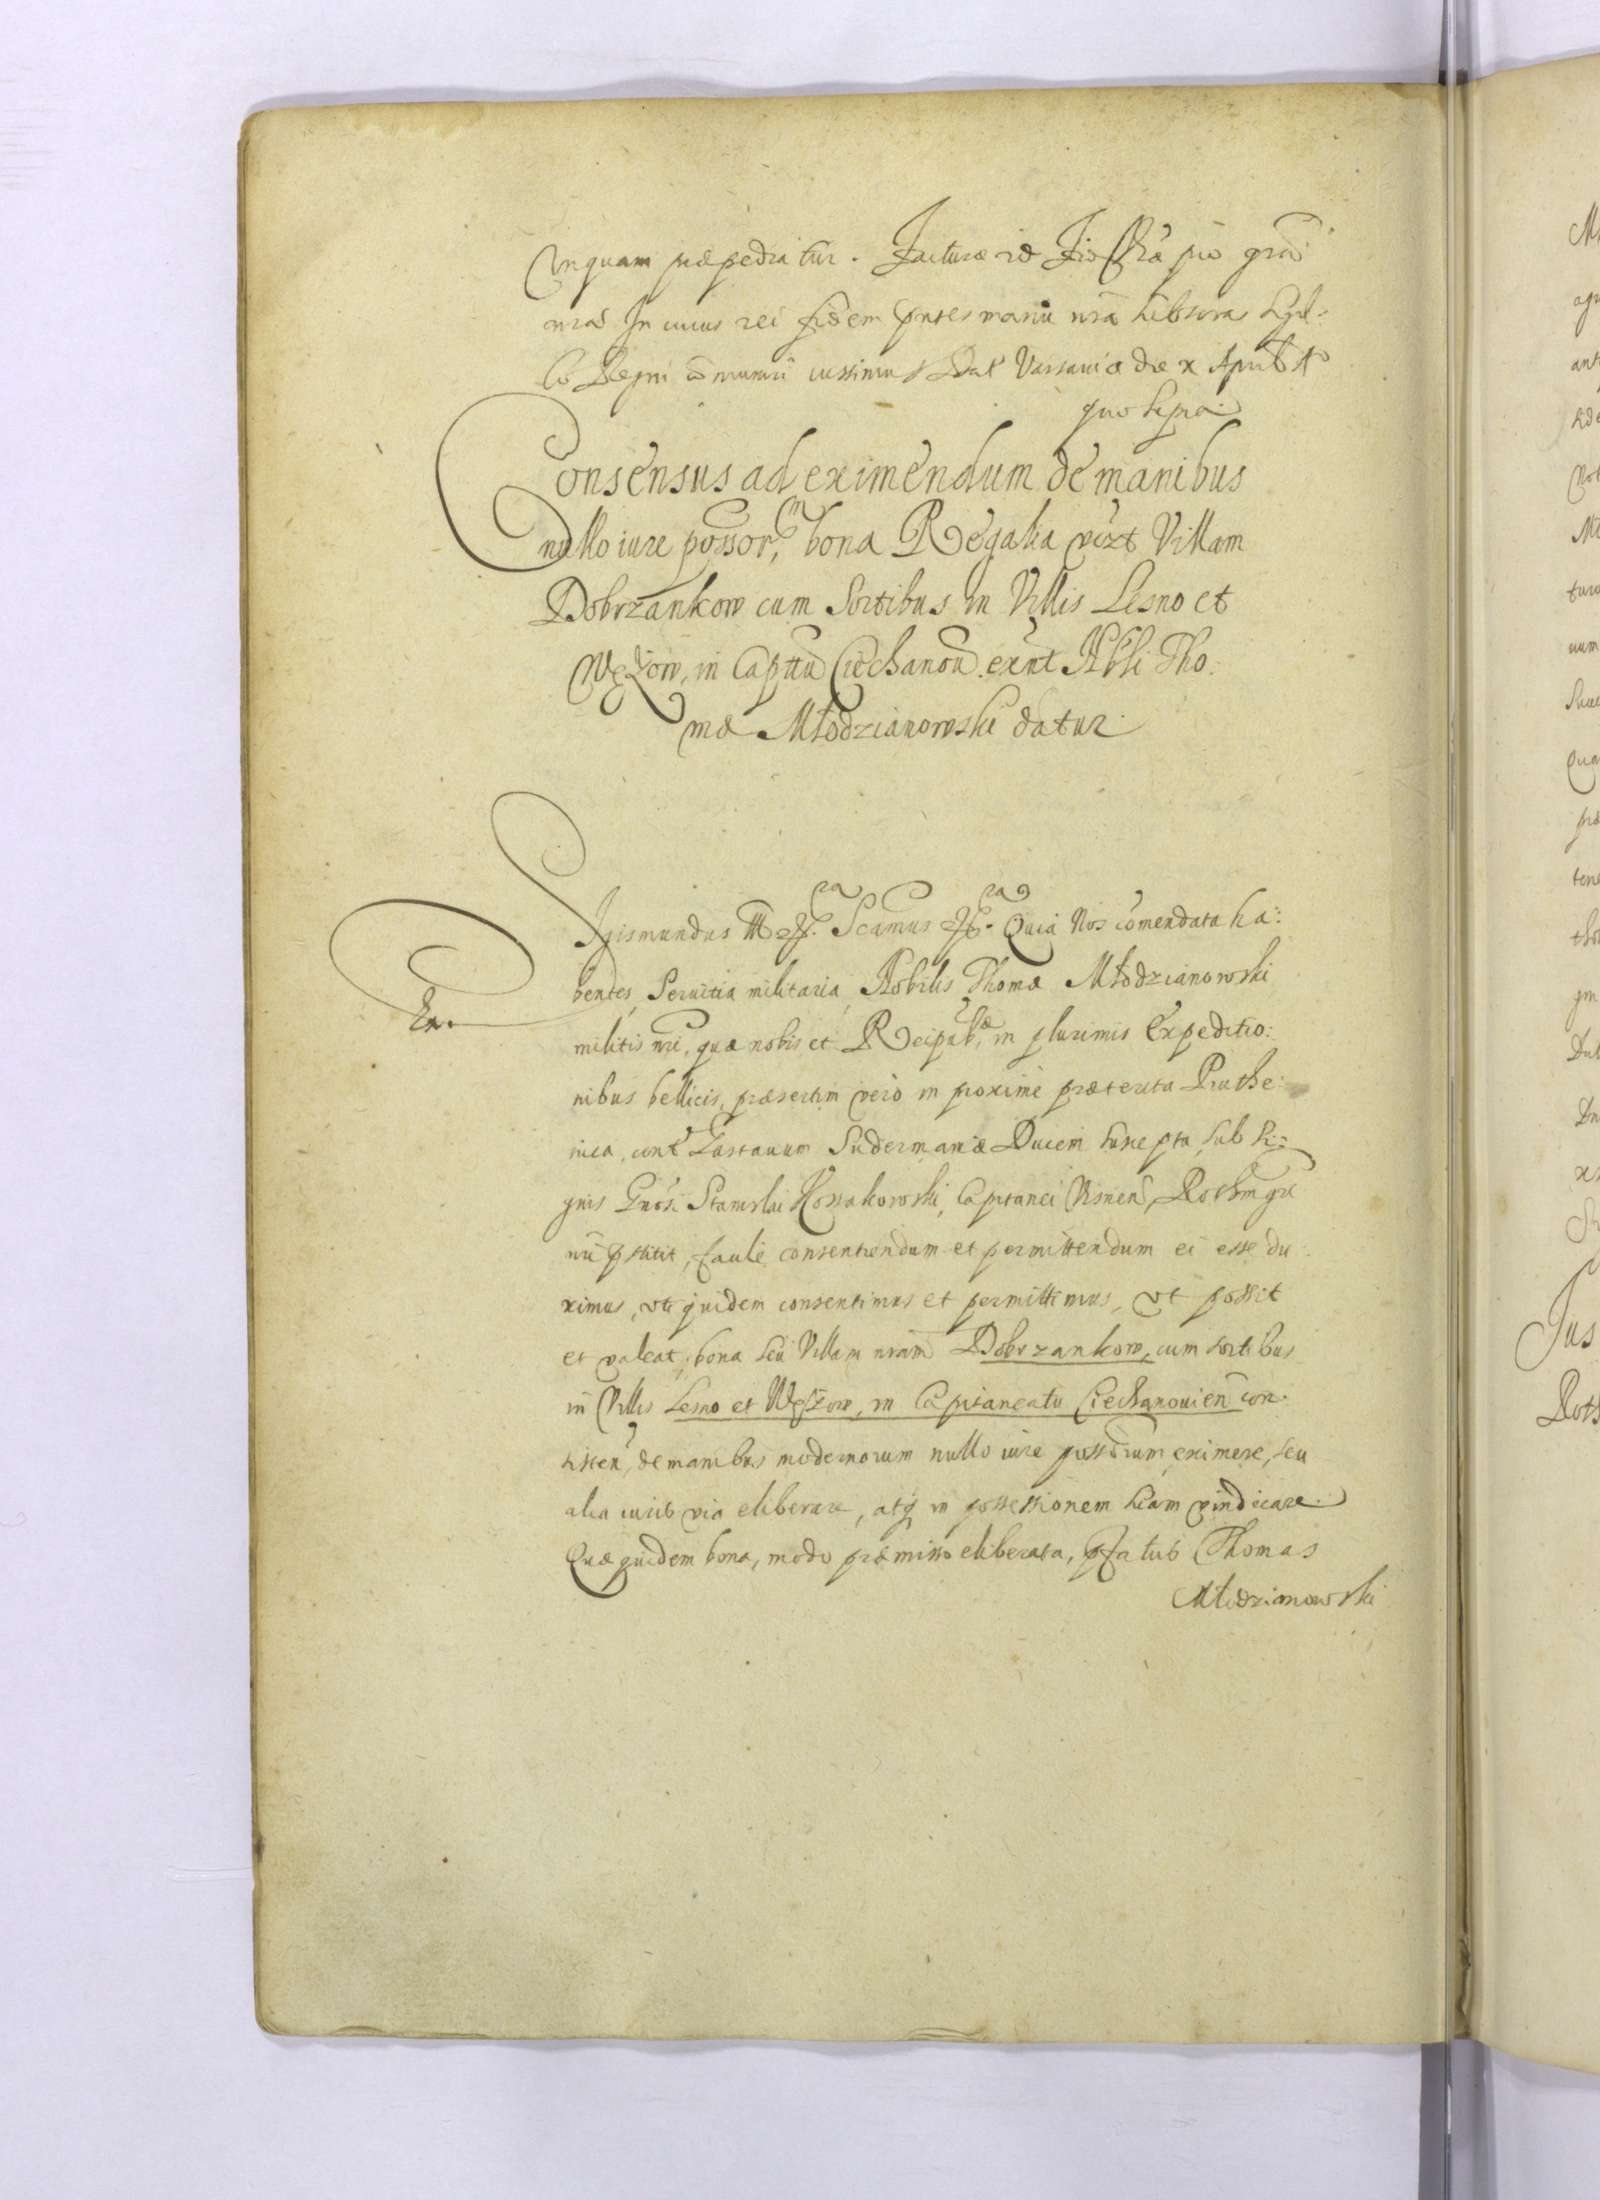 unquam præpediatur. Facturæ id Fid Vræ pro grã
nra In cuius rei fidem pntes manu nra subscra Sigil:
lo Regni comuniri iussimus Dat Varsauiæ die x Aprilis Ao
quo supra
Consensus ad eximendum de manibus
nullo iure possor, bona Regalia vizt Villam
Dobrzankow cum Sortibus in Villis Lesno et
Węzow, in Capttu Ciechanou. exnt Nbli Tho:
mæ Młodzianowski datur
Sigismundus III Scamus Quia Nos comendata ha:
bentes, Seruitia militaria, Nobilis Thomæ Młodzianowski
militis nri, quæ nobis et Reipub, in plurimis Expeditio:
nibus bellicis, præsertim vero in proxime præterita Pruthe:
nica, cont Gustauum Sudermaniæ Ducem suscepta, sub Si:
gnis Gnosi Stanislai Kossakowski, Capitanei Visnen, Rothmgri
nri pstitit, facile consentiendum et permittendum ei esse du:
ximus, uti quidem consentimus et permittimus, vt possit
et valeat, bona seu Villam nram Dobrzankow, cum sortibus
in Villis Lesno et Węzow, in Capitaneatu Ciechanouien con:
sisten, de manibus modernorum nullo iure possorum, eximere, seu
alia iuris via eliberare, atq in possessionem suam vindicare.
Quæ quidem bona, modo præmisso eliberata, pfatus Thomas
Młodzianowski